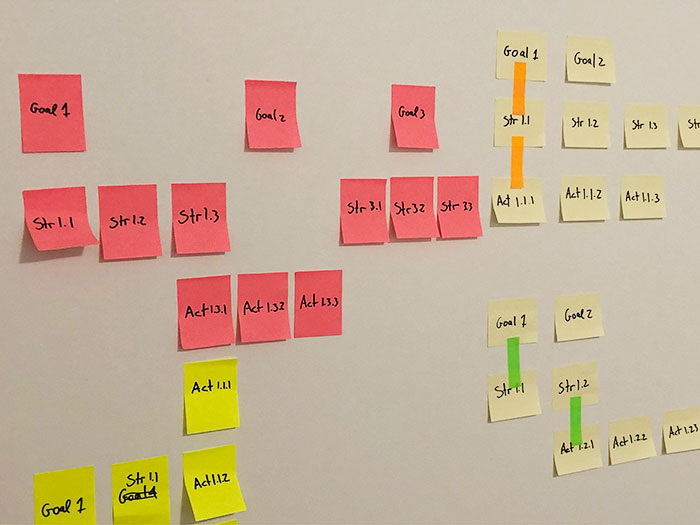 Goal 1
Goal 2
Goal 3
Str 1.1
Str 1.2
Str 1.3
Str 3.1
Str 3.2
Str 3.3
Act 1.3.1
Act 1.3.2
Act 1.3.3
Act 1.1.1
Act 1.1.2
Goal 1
Str 1.1
Goal 1
Goal 2
Str 1.1
Str 1.2
Str 1.3
Str
Act 1.1.1
Act 1.1.2
Act 1.1.3
Goal 1
Goal 2
Str 1.1
Str 1.2
Act 1.2.1
Act 1.2.2
Act 1.2.3